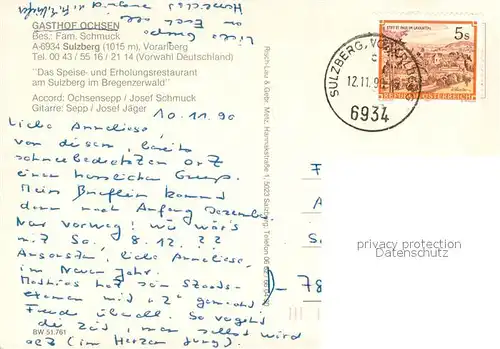 GASTHOF OCHSEN
Bes.: Fam. Schmuck
A-6934 Sulzberg (1015 m), Vorarlberg
Tel. 00 43 / 55 16 / 21 14 (Vorwahl Deutschland)
"Das Speise- und Erholungsrestaurant
am Sulzberg im Bregenzerwald"
Accord: Ochsensepp / Josef Schmuck
Gitarre: Sepp / Josef Jäger
10.11.90
Liebe Anneliese,
von diesem, bereits
schneebedeckten Ort
einen herzlichen Gruß.
Mein Brieflein kommt
dann nach Anfang Dezember.
Nur vorweg: wie wär's
mit So. 8.12. ??
Ansonsten, liebe Anneliese,
im Neuen Jahr.
Matthias hat sein Staats-
examen mit "2" gemacht
Freude überall. So vergeht
die Zeit, man selbst wird
alt (im Herzen jung).
Liebe Grüße
an Euch alle
BW 51.761
5s
REPUBLIK ÖSTERREICH
SULZBERG, VORARLBERG
12.11.90
6934
F
A
S
78
privacy protection
Datenschutz